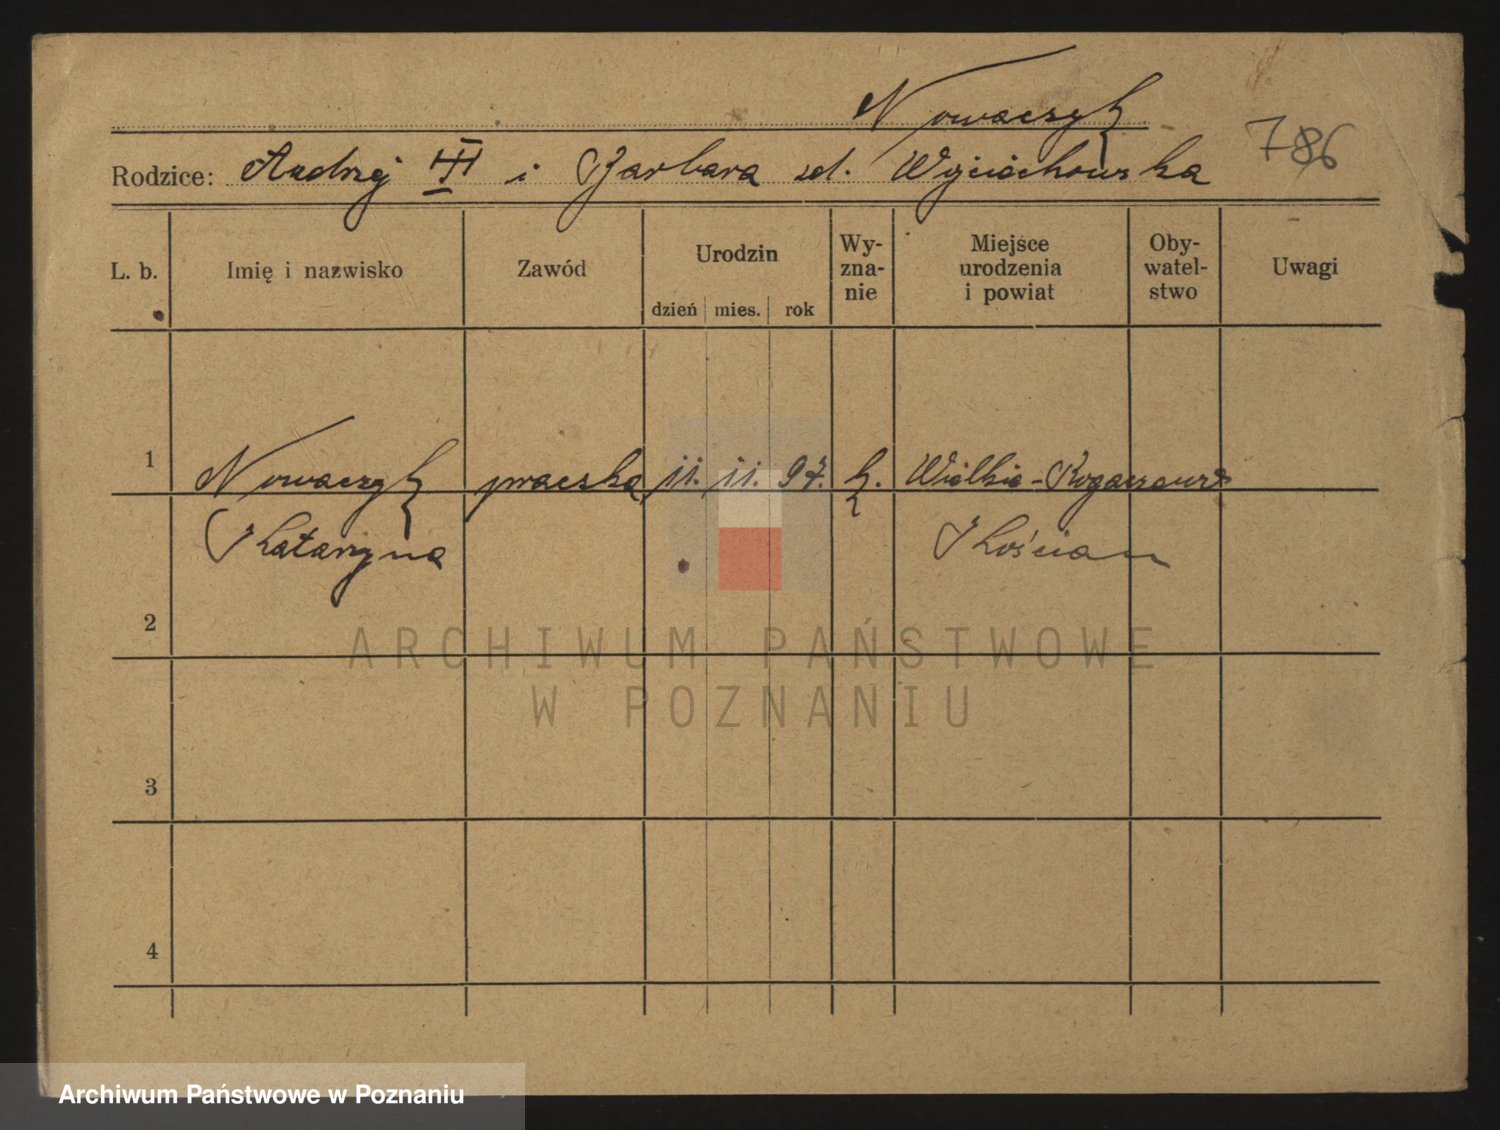 Nowaczyk
786
Rodzice: Andrzej III i Barbara zd. Wojciechowska
L. b. Imię i nazwisko Zawód Urodzin dzień mies. rok Wyznanie Miejsce urodzenia i powiat Obywatelstwo Uwagi
1 Nowaczyk praczka 11. 11. 97. k.
Katarzyna Kościan
2
3
4
ARCHIWUM PAŃSTWOWE
W POZNANIU
Archiwum Państwowe w Poznaniu